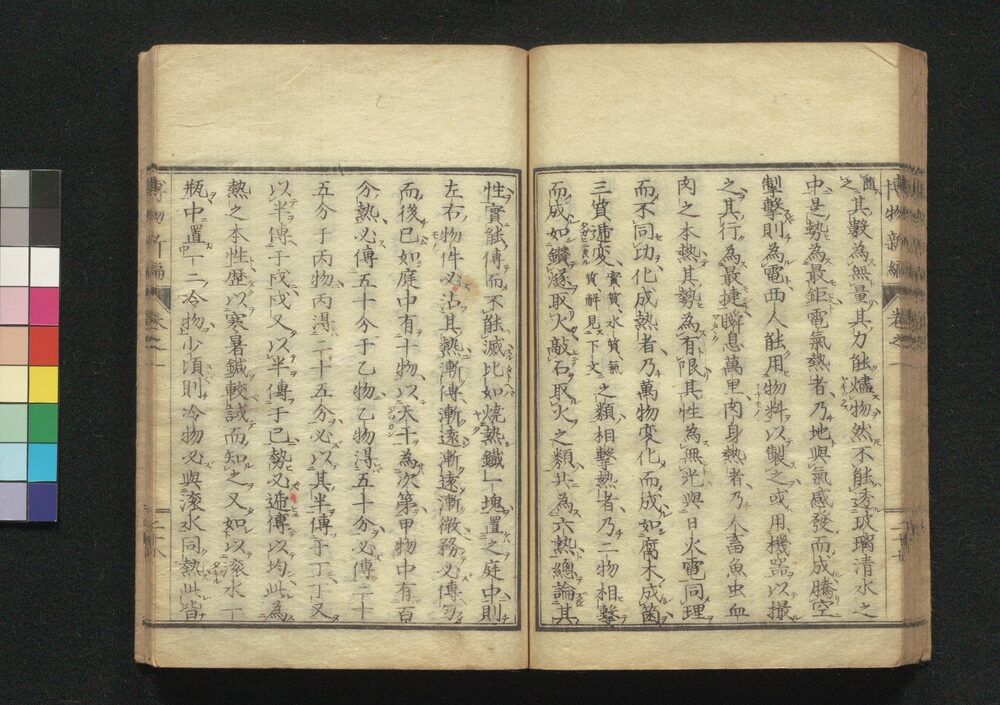 之其數為無量其力能爐物然不能透玻璃清水之
中是勢為最鉅電氣熱者乃地與氣感發而成騰空
掣擊則為電西人能用物料以製之或用機器以撮
之其行為最捷瞬息萬里肉身熱者乃人畜魚虫血
肉之本熱其勢為有限其性為無光與日火電同理
而不同功化成熱者乃萬物変化而成如腐木成菌
三質遞変實質、水質、氣質解見下文之類相擊熱者乃二物相擊
而成如鑽燧取火敲石取火之類共為六熱總論其
博物新編 卷之一
性實能傳而不能滅比如燒熱鐵一塊置之庭中則
左右物件必沾其熱漸傳漸遠漸遠漸微務必傳勻
而後已如庭中有十物以天干為次第甲物中有百
分熱必傳五十分于乙物乙物得五十分必傳二十
五分于丙物丙得二十五分必以其半傳于丁丁又
以半傳于戊戊又以半傳于己勢必遞傳以均此為
熱之本性歷以寒暑鍼較試而知之又如以滾水一
瓶中置一二冷物少頃則冷物必與滾水同熱此皆
博物新編 卷之一